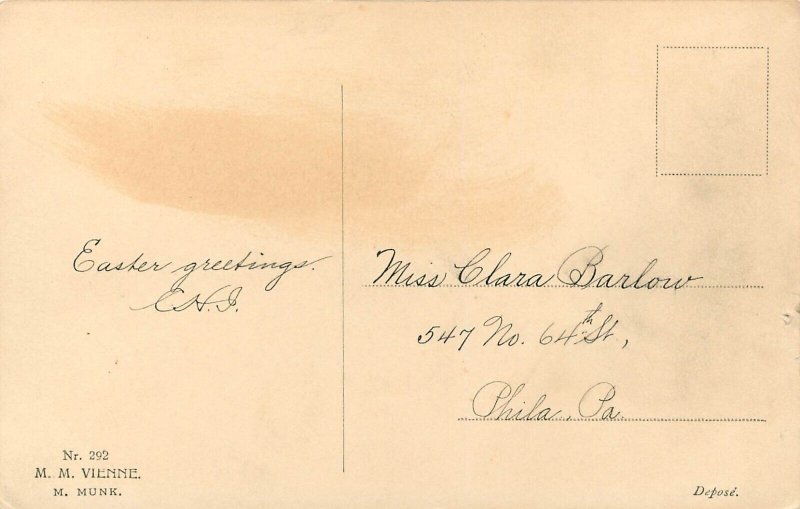 Easter greetings.
Miss Clara Barlow
547 No. 64th St,
Phila, Pa.
Nr. 292
M. M. VIENNE.
M. MUNK.
Deposé.